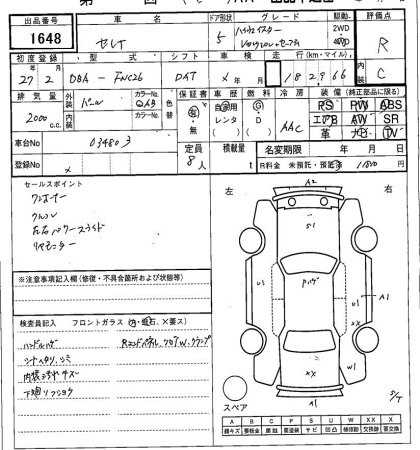 出品番号 車名 ドア形状 グレード 駆動 評価点
1648 セレナ 5 ハイウェイスター 2WD 4WD R
初度登録 型式 シフト 車検 走行(km・マイル)
27年 2月 DBA-FNC26 DAT ×年 月 18 2966 C
排気量 外装 パール カラーNo. QAB 色替 保証書 車歴 燃料 冷房 装備(純正部品に限る)
2000 c.c. 内装 カラーNo. 有・無 自家用 レンタ G D AAC PS PW ABS
エアB AW SR
革 ナビ TV
車台No 034803
定員 8人 積載量 t 名変期限 年 月 日
登録No × R料金 未預託・預託済 11810
セールスポイント
ワンオーナー
左右パワースライド
リヤモニター
左 右
A2
S1
U1 Pハゲ U1 A1
W1
XX
XX
A1
S/T
スペア
※注意事項記入欄(修復・不具合箇所および状態等)
検査員記入 フロントガラス(キズ・飛石、×要ス)
ハンドルハゲ
シートスリ、シミ
内装ヨゴレキズ
下廻りフショク
Rエンドパネル、フロアW、クランプ
A B C P S U W X XX
線キズ 要板金 腐蝕 要塗装 サビ 凹凸 補修跡 交換跡 要交換